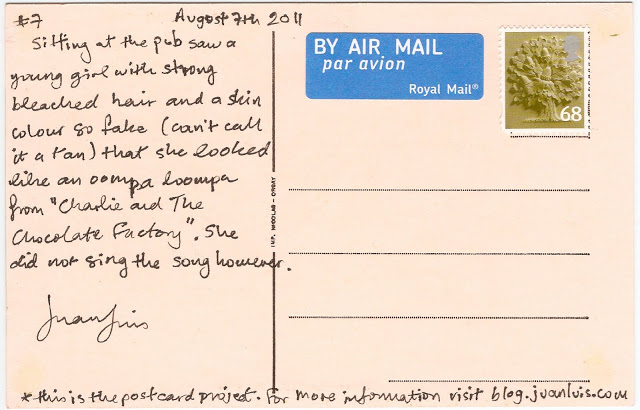 #7 August 7th 2011
Sitting at the pub saw a
young girl with strong
bleached hair and a skin
colour so fake (can't call
it a tan) that she looked
like an oompa loompa
from "Charlie and The
Chocolate Factory". She
did not sing the song however.
Juan Luis
*this is the postcard project. For more information visit blog.juanluis.com
BY AIR MAIL
par avion
Royal Mail®
68